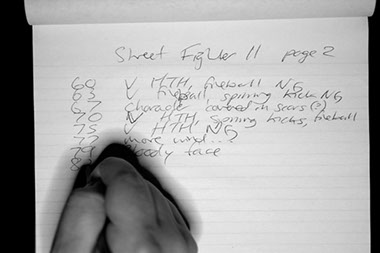 Street Fighter II page 2
60 √ HTH, fireball NG
63 √ fireball, spinning kick NG
67 character covered in scars (?)
70 √ HTH, spinning kicks, fireball
75 √ HTH NG
77 more wind...
79 bloody face